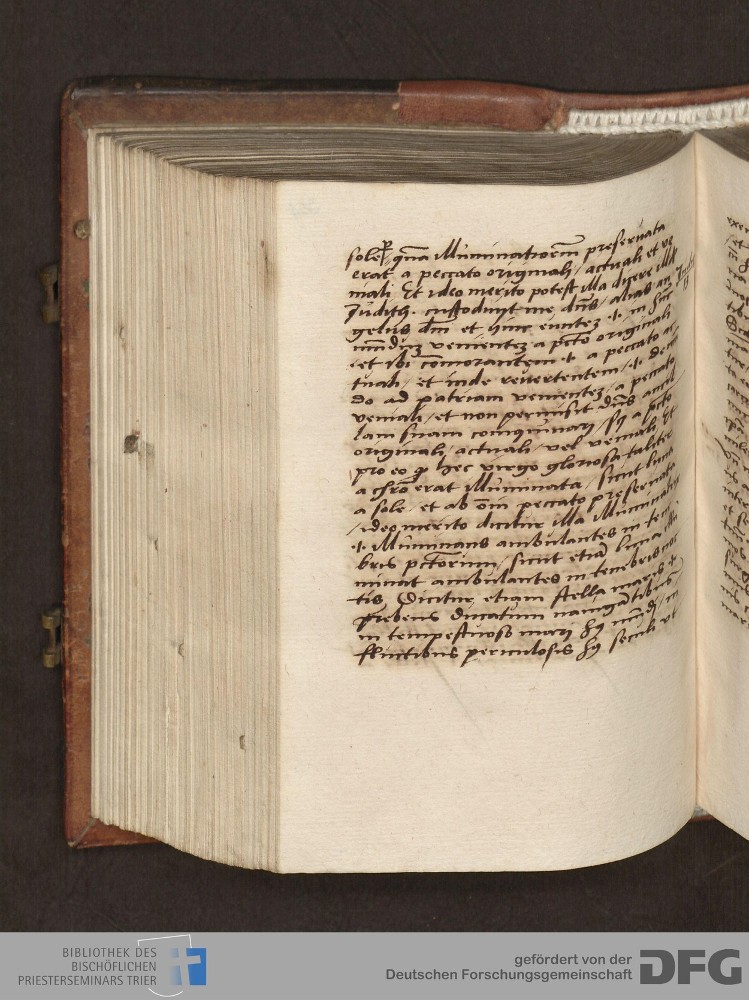 sole, qua illuminatione preseruata
erat a peccato originali / actuali et ve
niali Et ideo merito potest illa dicere illud
Judith. custodiuit me, dns, alias an
gelus dni et hinc euntez .i. in hunc
mundu venientez a pcto originali
et ibi comorantem .i. a peccato ac
tuali / et inde reuertentem / .i. de
do ad patriam venientez / a peccato
veniali / et non permisit dns ancil
lam suam coinquinari
originali / actuali / vel veniali Et
pro eo hec virgo gloriosa taliter
a chro erat illuminata / sicut luna
a sole / et ab oi peccato preseruata
/ ideo merito dicitur illa illuminatrix
.i. illuminans ambulantes in tene
bris pctorum / sicut etia luna illu
minat ambulantes in tenebris noc
tis Dicitur etiam stella maris .i.
prebens ducatum nauigatibus
in tempestuoso mari mudi / in
fluctibus periculosis seculi vt
BIBLIOTHEK DES
BISCHÖFLICHEN
PRIESTERSEMINARS TRIER
gefördert von der
Deutschen Forschungsgemeinschaft
DFG